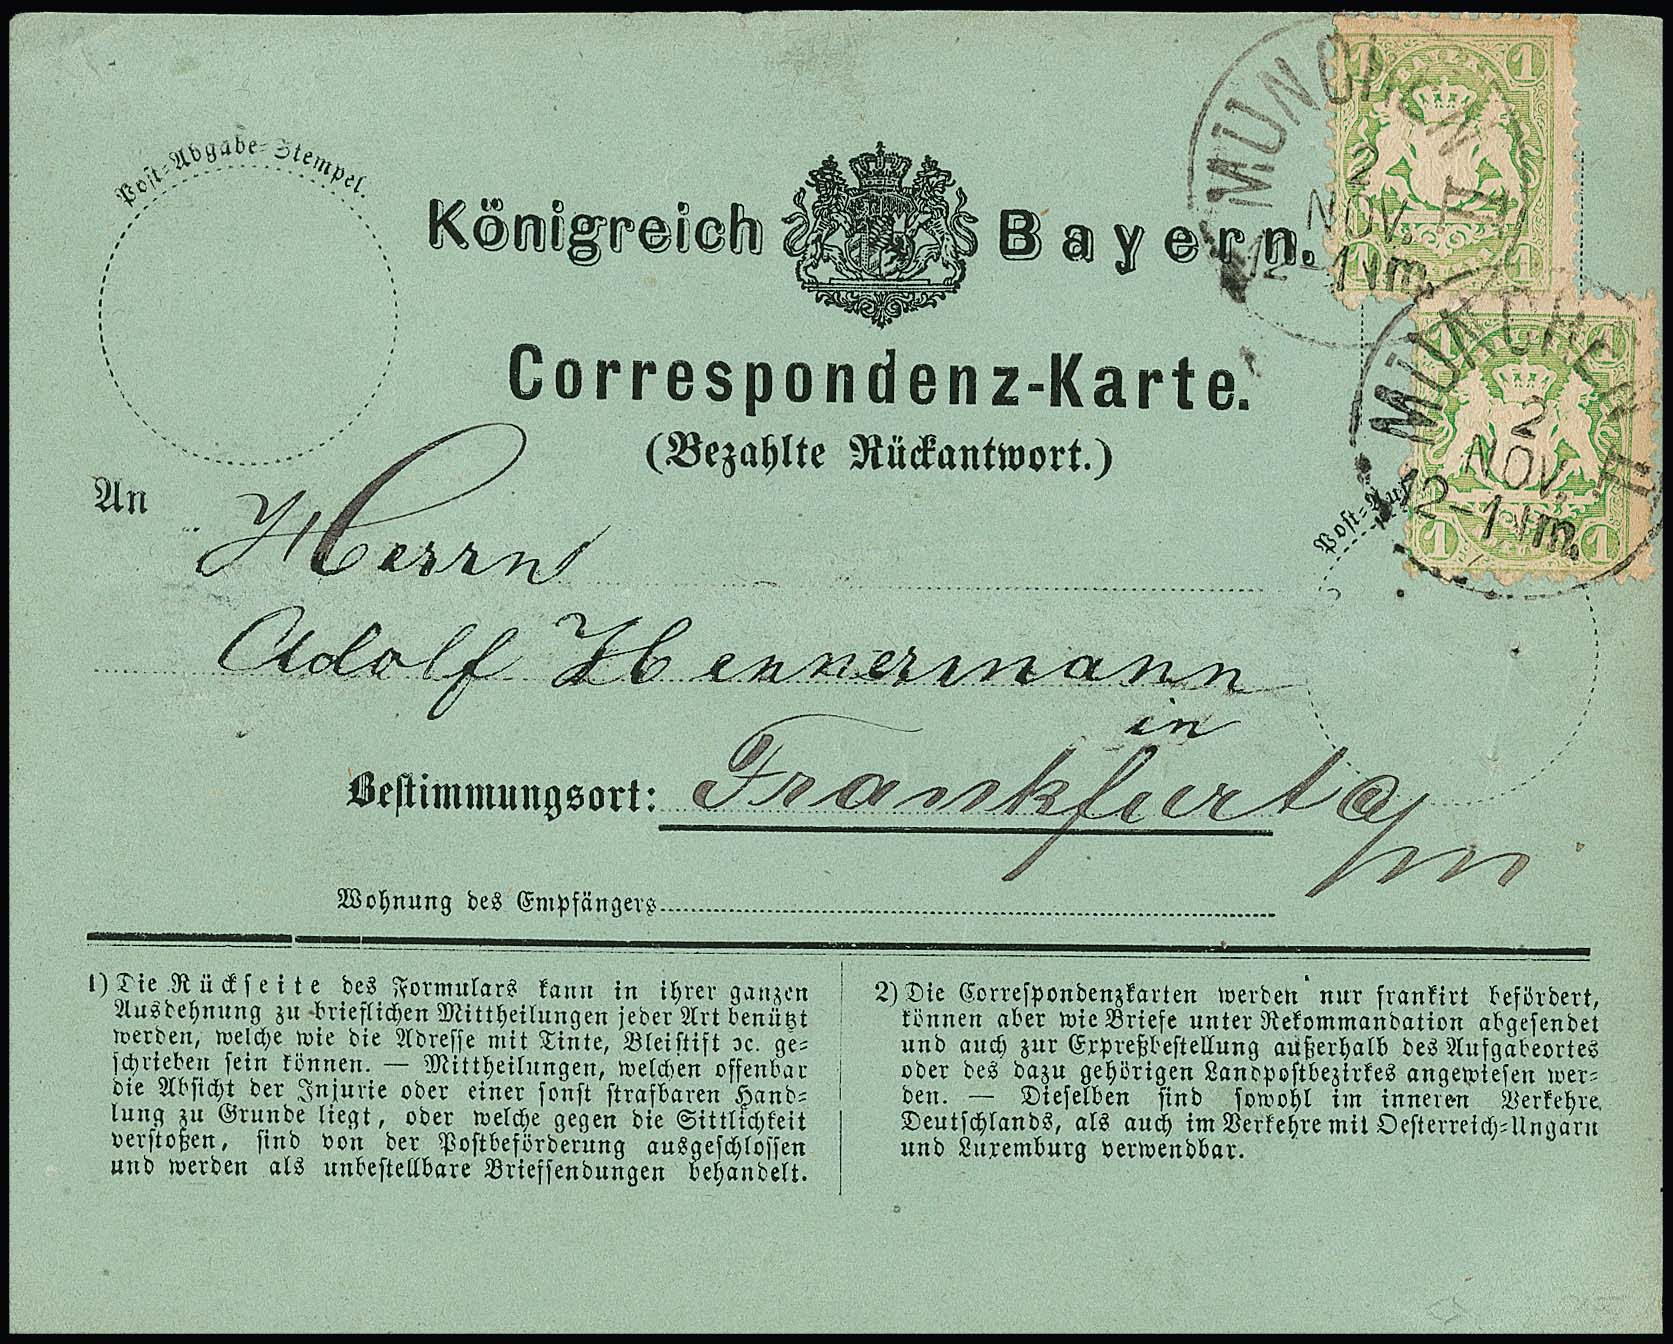 Post-Abgabe-Stempel.
Königreich Bayern.
Correspondenz-Karte.
(Bezahlte Rückantwort.)
BAYERN
1 1
1 1
MÜNCHEN II
2
NOV.
12-1 Nm.
1 1
1 1
MÜNCHEN II
2
NOV.
12-1 Nm.
Post-Auf
An Herrn
Adolf Hennermann
in
Bestimmungsort: Frankfurt a/m
Wohnung des Empfängers
1) Die Rückseite des Formulars kann in ihrer ganzen
Ausdehnung zu brieflichen Mittheilungen jeder Art benützt
werden, welche wie die Adresse mit Tinte, Bleistift ꝛc. ge-
schrieben sein können. — Mittheilungen, welchen offenbar
die Absicht der Injurie oder einer sonst strafbaren Hand-
lung zu Grunde liegt, oder welche gegen die Sittlichkeit
verstoßen, sind von der Postbeförderung ausgeschlossen
und werden als unbestellbare Briefsendungen behandelt.
2) Die Correspondenzkarten werden nur frankirt befördert,
können aber wie Briefe unter Rekommandation abgesendet
und auch zur Expreßbestellung außerhalb des Aufgabeortes
oder des dazu gehörigen Landpostbezirkes angewiesen wer-
den. — Dieselben sind sowohl im inneren Verkehre
Deutschlands, als auch im Verkehre mit Oesterreich-Ungarn
und Luxemburg verwendbar.